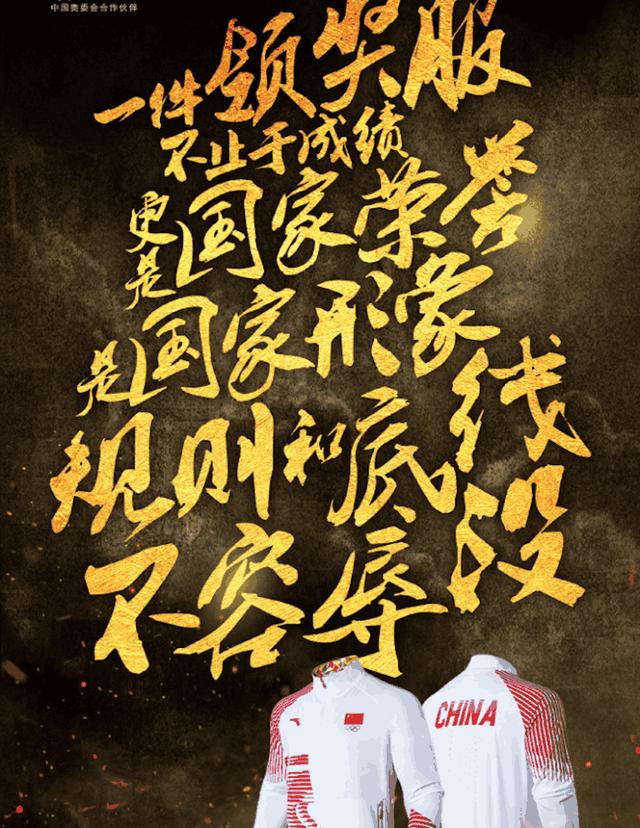 中国奥委会合作伙伴
一件领奖服
不止于成绩
更是国家荣誉
是国家形象
规则和底线
不容辱没
CHINA